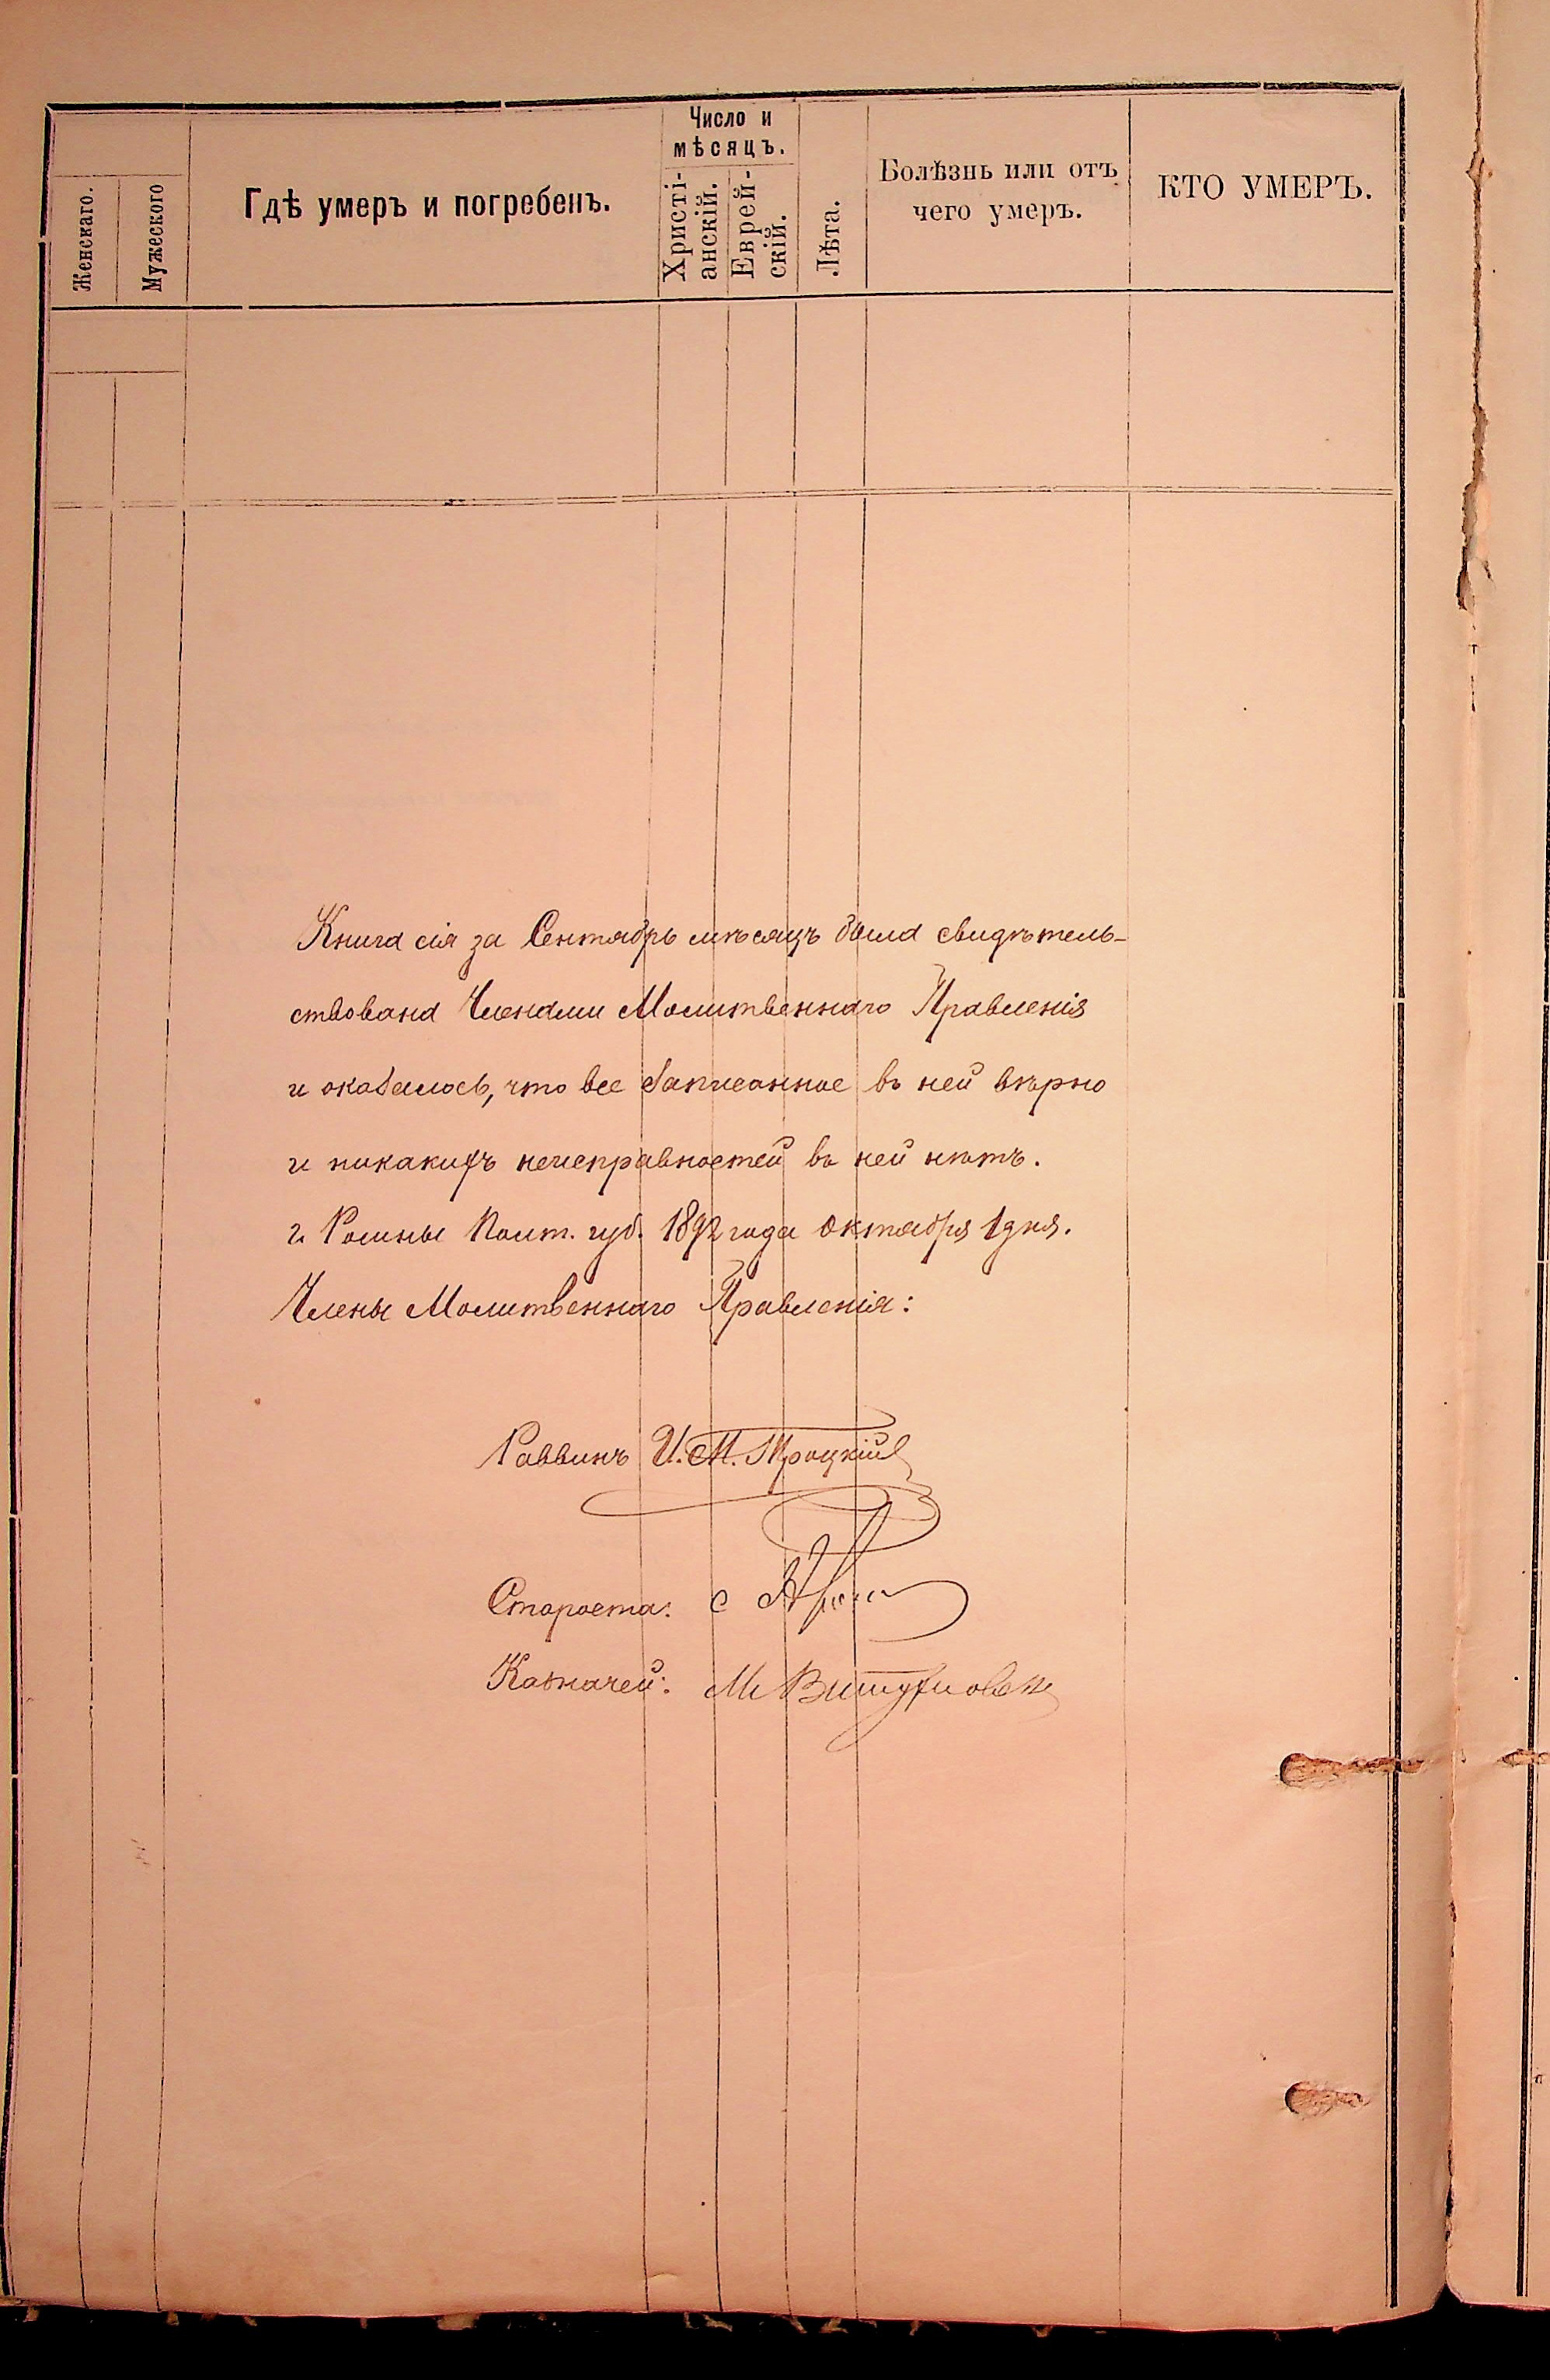 Женскаго.
Мужескаго
Гдѣ умеръ и погребенъ.
Число и
мѣсяцъ.
Христі-
анскій.
Еврей-
скій.
Лѣта.
Болѣзнь или отъ
чего умеръ.
КТО УМЕРЪ.
Книга сія за Сентябрь мѣсяцъ была свидѣтель-
ствована Членами Молитвеннаго Правленія
и оказалось, что все записанное въ ней вѣрно
и никакихъ неисправностей въ ней нѣтъ.
г. Ромны Полт. губ. 1892 года Октября 1 дня.
Члены Молитвеннаго Правленія:
Раввинъ И. М. Троцкій
Староста:
Казначей: М